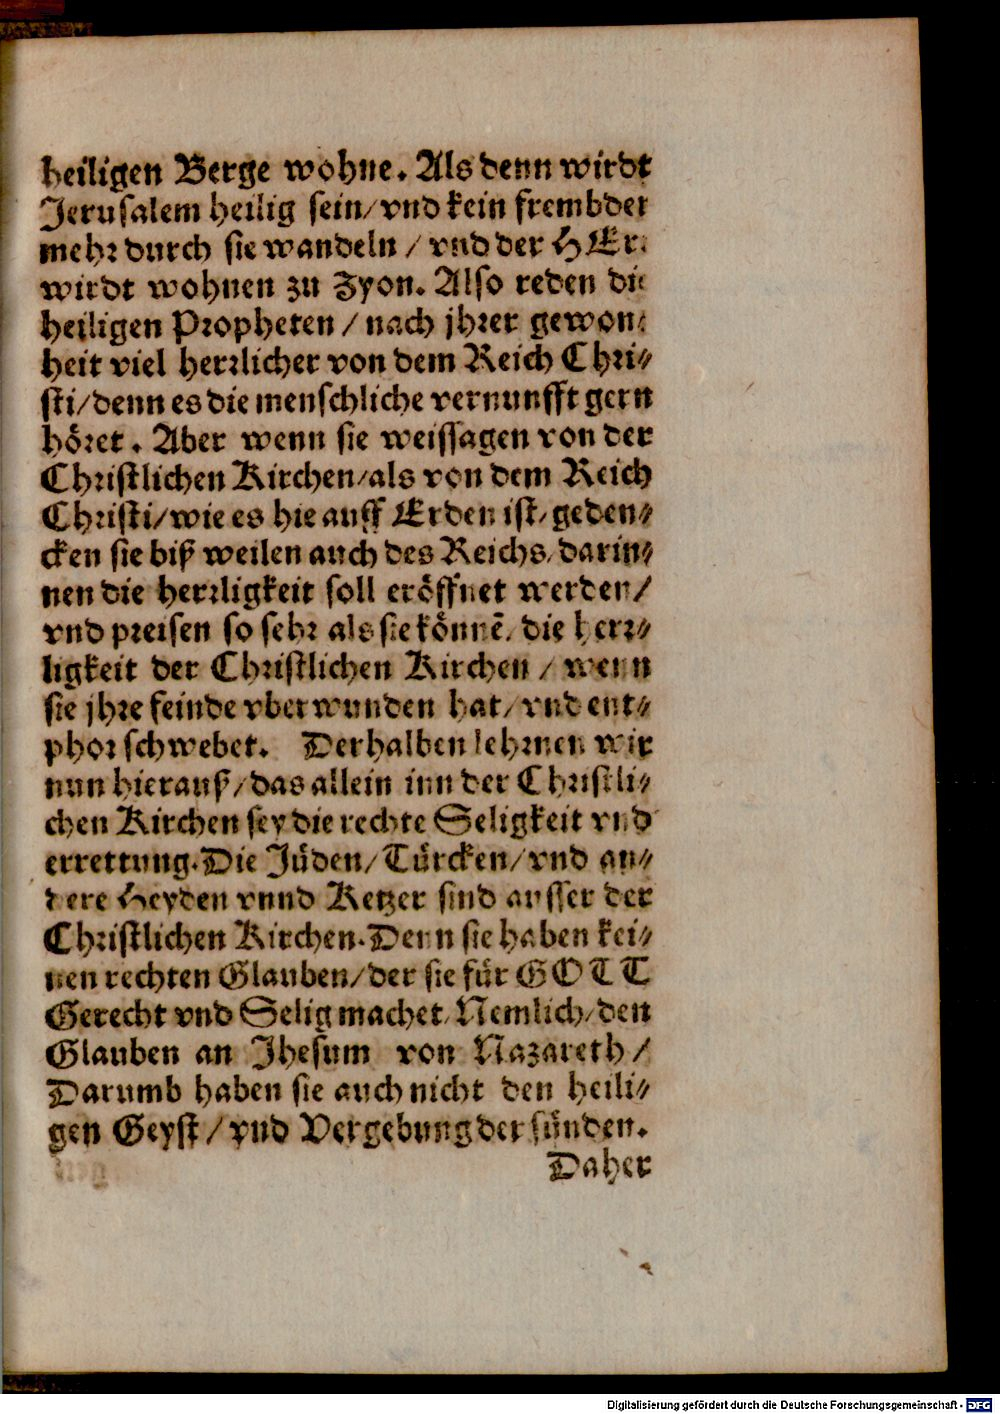 heiligen Berge wohne. Als denn wirdt
Jerusalem heilig sein/ vnd kein frembder
mehr durch sie wandeln / vnd der HErr
wirdt wohnen zu Zyon. Also reden die
heiligen Propheten / nach jhrer gewon-
heit viel herrlicher von dem Reich Chri⸗
sti/ denn es die menschliche vernunfft gern
höret. Aber wenn sie weissagen von der
Christlichen Kirchen/ als von dem Reich
Christi/ wie es hie auff Erden ist/ geden⸗
cken sie biß weilen auch des Reichs/ darin⸗
nen die herrligkeit soll eröffnet werden/
vnd preisen so sehr als sie könnē/ die herr⸗
ligkeit der Christlichen Kirchen / wenn
sie jhre feinde vberwunden hat/ vnd ent⸗
phor schwebet. Derhalben lehrnen wir
nun hierauß/ das allein inn der Christli⸗
chen Kirchen sey die rechte Seligkeit vnd
errettung. Die Jüden/ Türcken/ vnd an⸗
dere Heyden vnnd Ketzer sind ausser der
Christlichen Kirchen. Denn sie haben kei⸗
nen rechten Glauben/ der sie für GOTT
Gerecht vnd Selig machet/ Nemlich/ den
Glauben an Jhesum von Nazareth /
Darumb haben sie auch nicht den heili⸗
gen Geyst / vnd Vergebung der sünden.
Daher
Digitalisierung gefördert durch die Deutsche Forschungsgemeinschaft - DFG